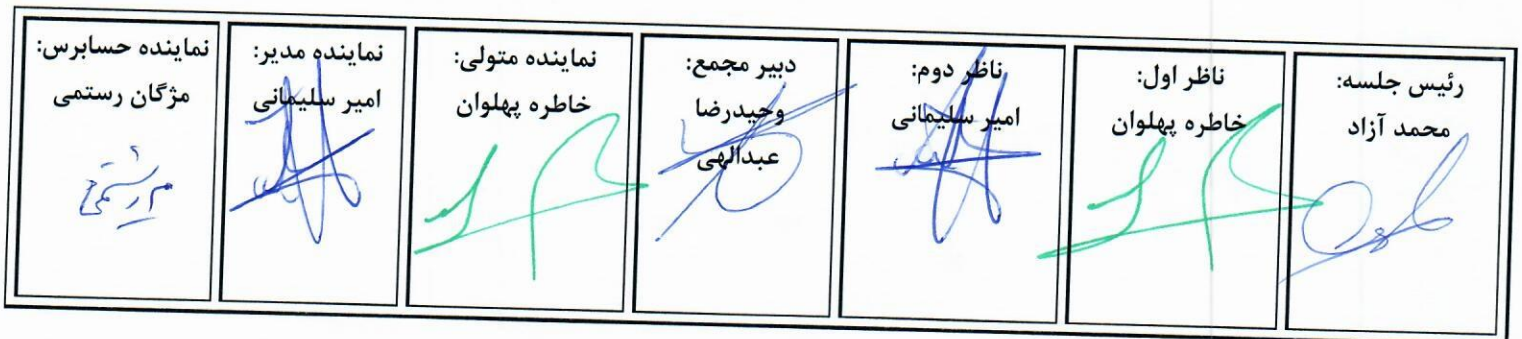 رئیس جلسه:
محمد آزاد
ناظر اول:
خاطره پهلوان
ناظر دوم:
امیر سلیمانی
دبیر مجمع:
وحیدرضا
عبدالهی
نماینده متولی:
خاطره پهلوان
نماینده مدیر:
امیر سلیمانی
نماینده حسابرس:
مژگان رستمی